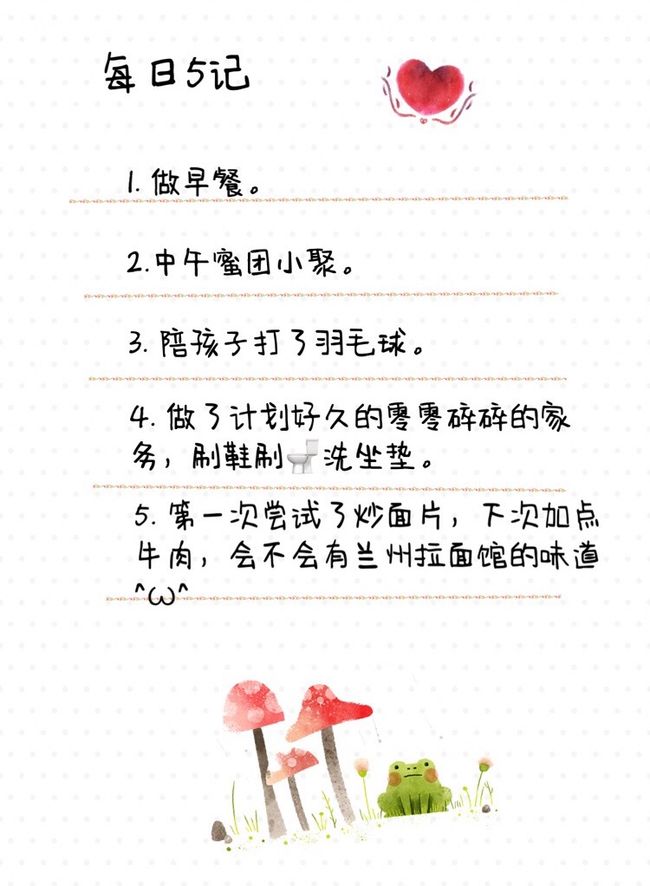 每日5记
1. 做早餐。
2.中午蜜团小聚。
3. 陪孩子打了羽毛球。
4. 做了计划好久的零零碎碎的家
务，刷鞋刷🚽洗坐垫。
5. 第一次尝试了炒面片，下次加点
牛肉，会不会有兰州拉面馆的味道
^ω^